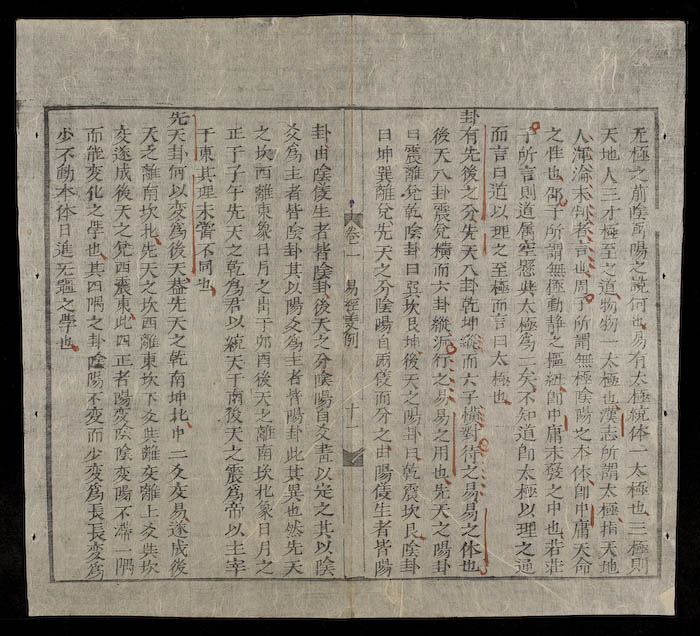 无極之前陰爲陽之說何也易有太極統体一太極也三極則
天地人三才極至之道物物一太極也漢志所謂太極指天地
人渾淪未判者言也周子所謂無極陰陽之本体卽中庸天命
之性也邵子所謂無極動静之樞紐卽中庸未發之中也若莊
子所言則道属空懸與太極為二矣不知道卽太極以理之通
而言曰道以理之至極而言曰太極也
卦有先後之分先天八卦乾坤縱而六子橫對待之易易之体也
後天八卦震兌橫而六卦縱流行之易易之用也先天之陽卦
曰震離兌乾陰卦曰巽坎艮坤後天之陽卦曰乾震坎艮陰卦
曰坤巽離兌先天之分陰陽自兩儀而分之由陽儀生者皆陽
卷一 易經要例 十一
卦由陰儀生者皆陰卦後天之分陰陽自爻畫以定之其以陰
爻爲主者皆陰卦其以陽爻爲主者皆陽卦此其異也然先天
之坎西離東象日月之出于卯酉後天之離南坎北象日月之
正于子午先天之乾為君以統天于南後天之震爲帝以主宰
于東其理未嘗不同也
先天卦何以変為後天葢先天之乾南坤北中二爻交易遂成後
天之離南坎北先天之坎西離東坎下爻與離变離上爻與坎
变遂成後天之兌西震東此四正者陽变陰陰变陽不滯一隅
而能变化之學也其四隅之卦陰陽不变而少变爲長長变爲
少不動本体日進无疆之學也